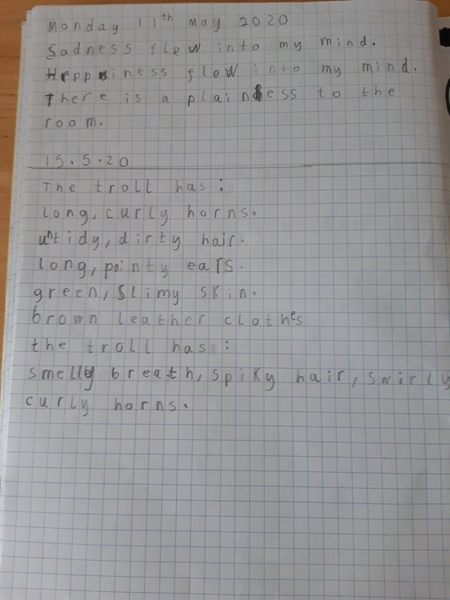 Monday 11th May 2020
Sadness flew into my mind.
Happiness flew into my mind.
There is a plainness to the
room.
15.5.20
The troll has:
long, curly horns.
untidy, dirty hair.
long, pointy ears.
green, slimy skin.
brown leather clothes
the troll has:
smelly breath, spiky hair, swirly
curly horns.